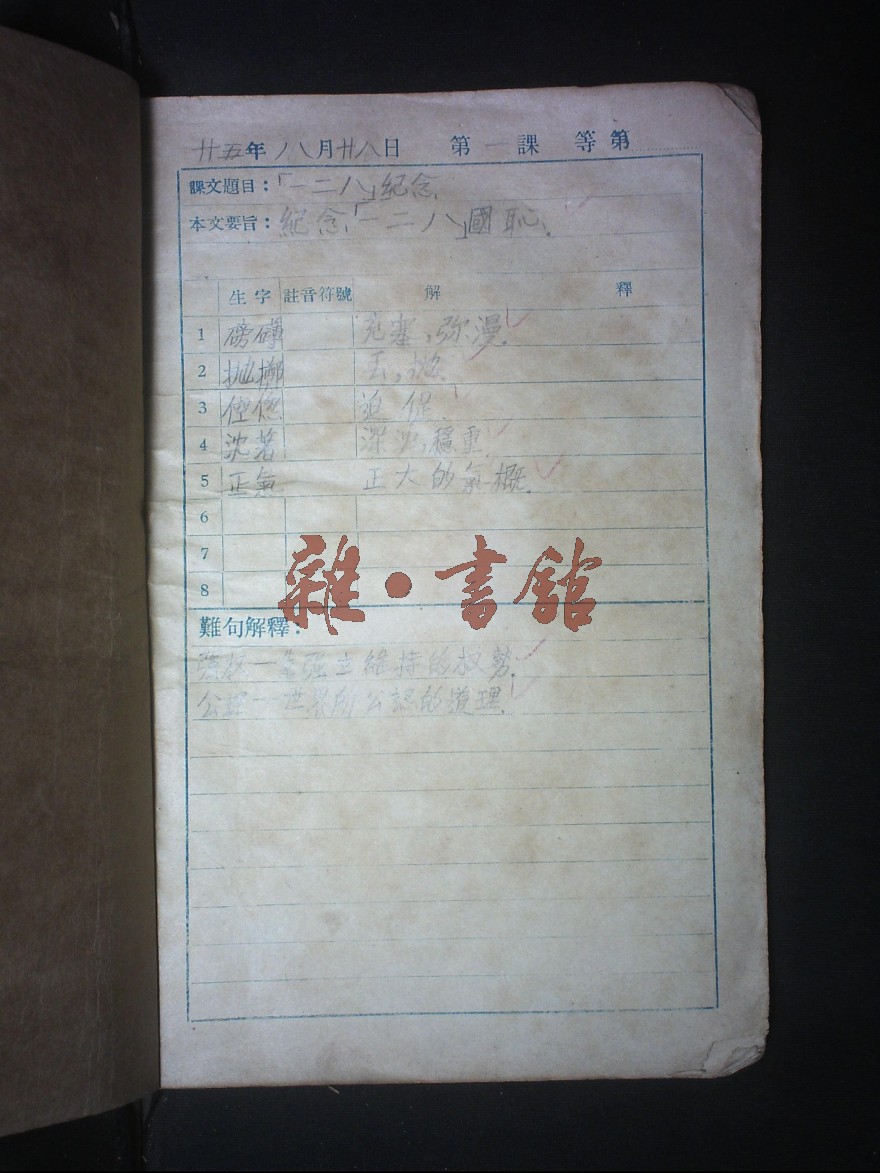 廿五年 八月廿八日 第一課 等第
課文題目：「一二八」紀念
本文要旨：紀念「一二八」國恥.
生字 註音符號 解 釋
1 磅礴 充塞,弥漫.
2 拋擲 丟,拋.
3 倥偬 迫促.
4 沈著 深沈,穩重.
5 正氣 正大的氣概.
6
7
8
雜·書館
難句解釋：
強權一 強 維持的权势.
公理一世界所公認的道理.